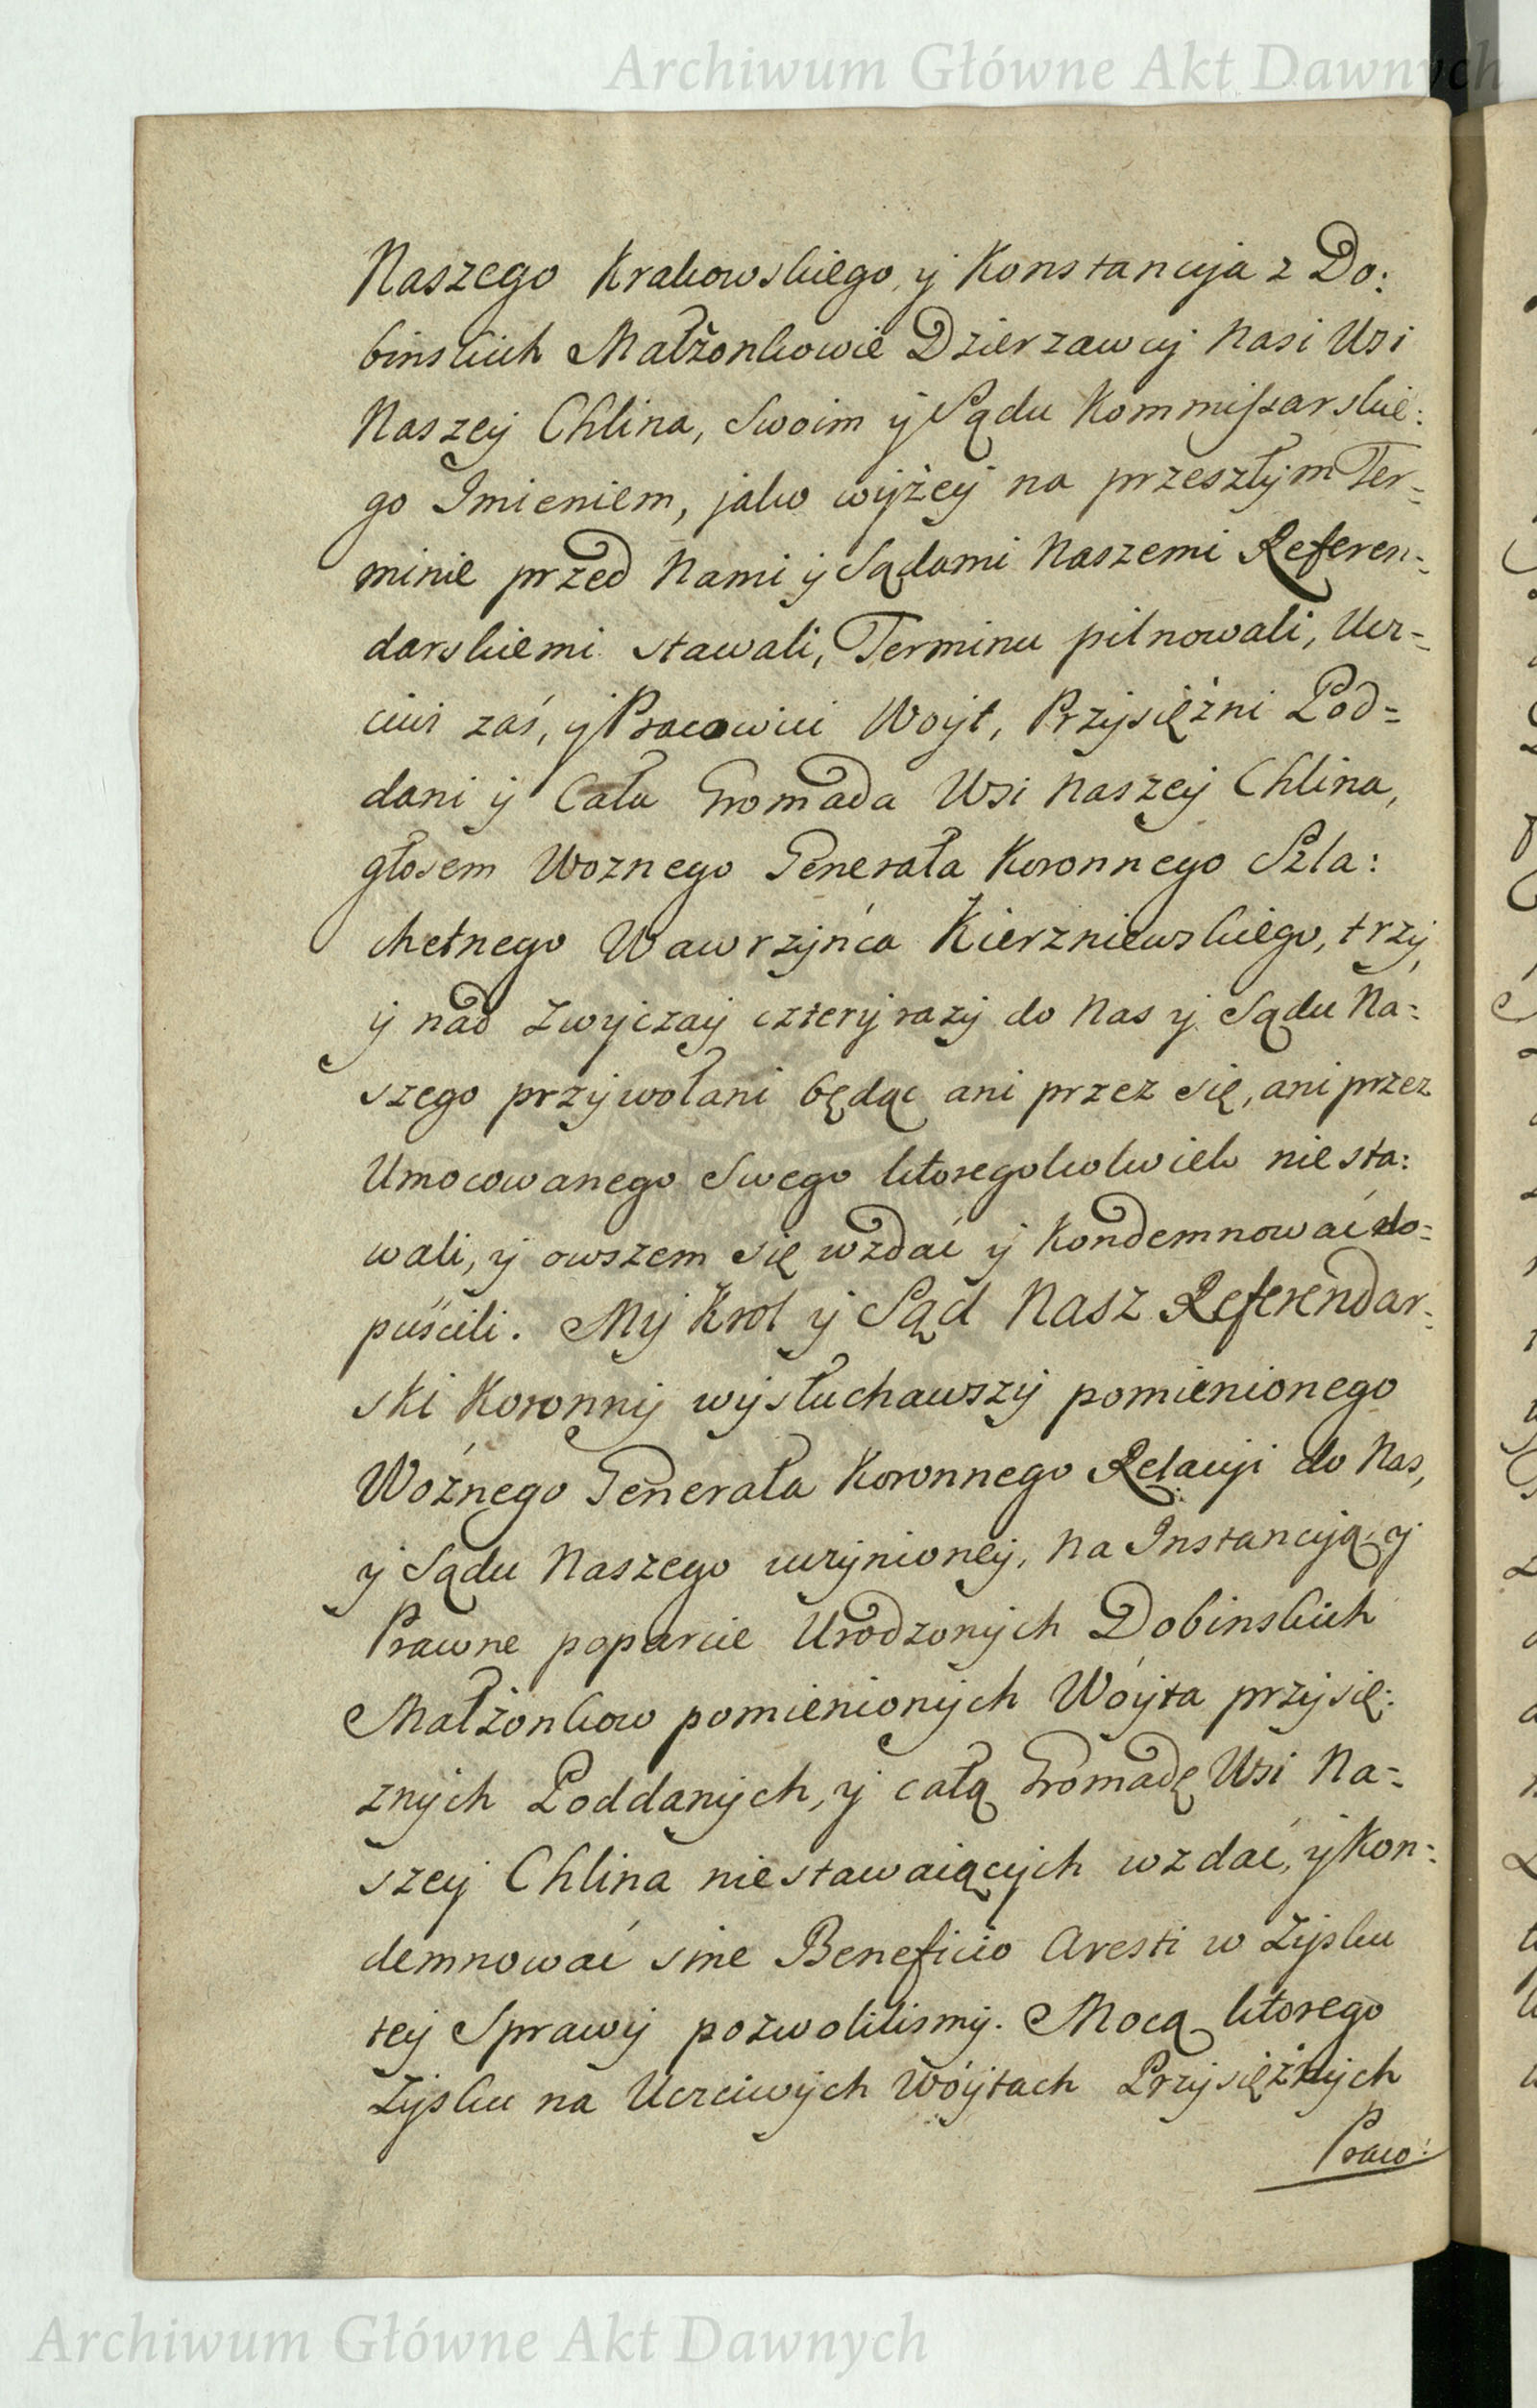 Archiwum Główne Akt Dawnych
Naszego Krakowskiego, y Konstancyja z Do:
binskich Małżonkowie Dzierzawcy Nasi Wsi
Naszey Chlina, Swoim y Sądu Kommissarskie:
go Imieniem, jako wyżey na przeszłym Ter=
minie przed Nami y Sądami Naszemi Referen=
darskiemi stawali, Terminu pilnowali, Ucz=
ciwi zaś, y Pracowici Woyt, Przysiężni Pod=
dani y Cała Gromada Wsi Naszey Chlina,
głosem Woznego Generała Koronnego Szla:
chetnego Wawrzyńca Kierzniewskiego, trzy,
y nad Zwyczay cztery razy do Nas y Sądu Na=
szego przywołani będąc ani przez się, ani przez
Umocowanego Swego ktoregokolwiek niesta:
wali, y owszem się wzdać y Kondemnować do=
puścili. My Krol y Sąd Nasz Referendar=
ski Koronny wysłuchawszy pomienionego
Woźnego Generała Koronnego Relacyi do Nas,
y Sądu Naszego uczynioney, na Instancyją y
Prawne poparcie Urodzonych Dobinskich
Małżonkow pomienionych Wóyta przysię:
znych Poddanych, y całą Gromadę Wsi Na=
szey Chlina niestawaiących wzdać, y Kon=
demnować sine Beneficio Aresti w Zysku
tey Sprawy pozwolilismy. Mocą ktorego
Zysku na Uczciwych Wóytach Przysiężnych
Praco:
Archiwum Główne Akt Dawnych